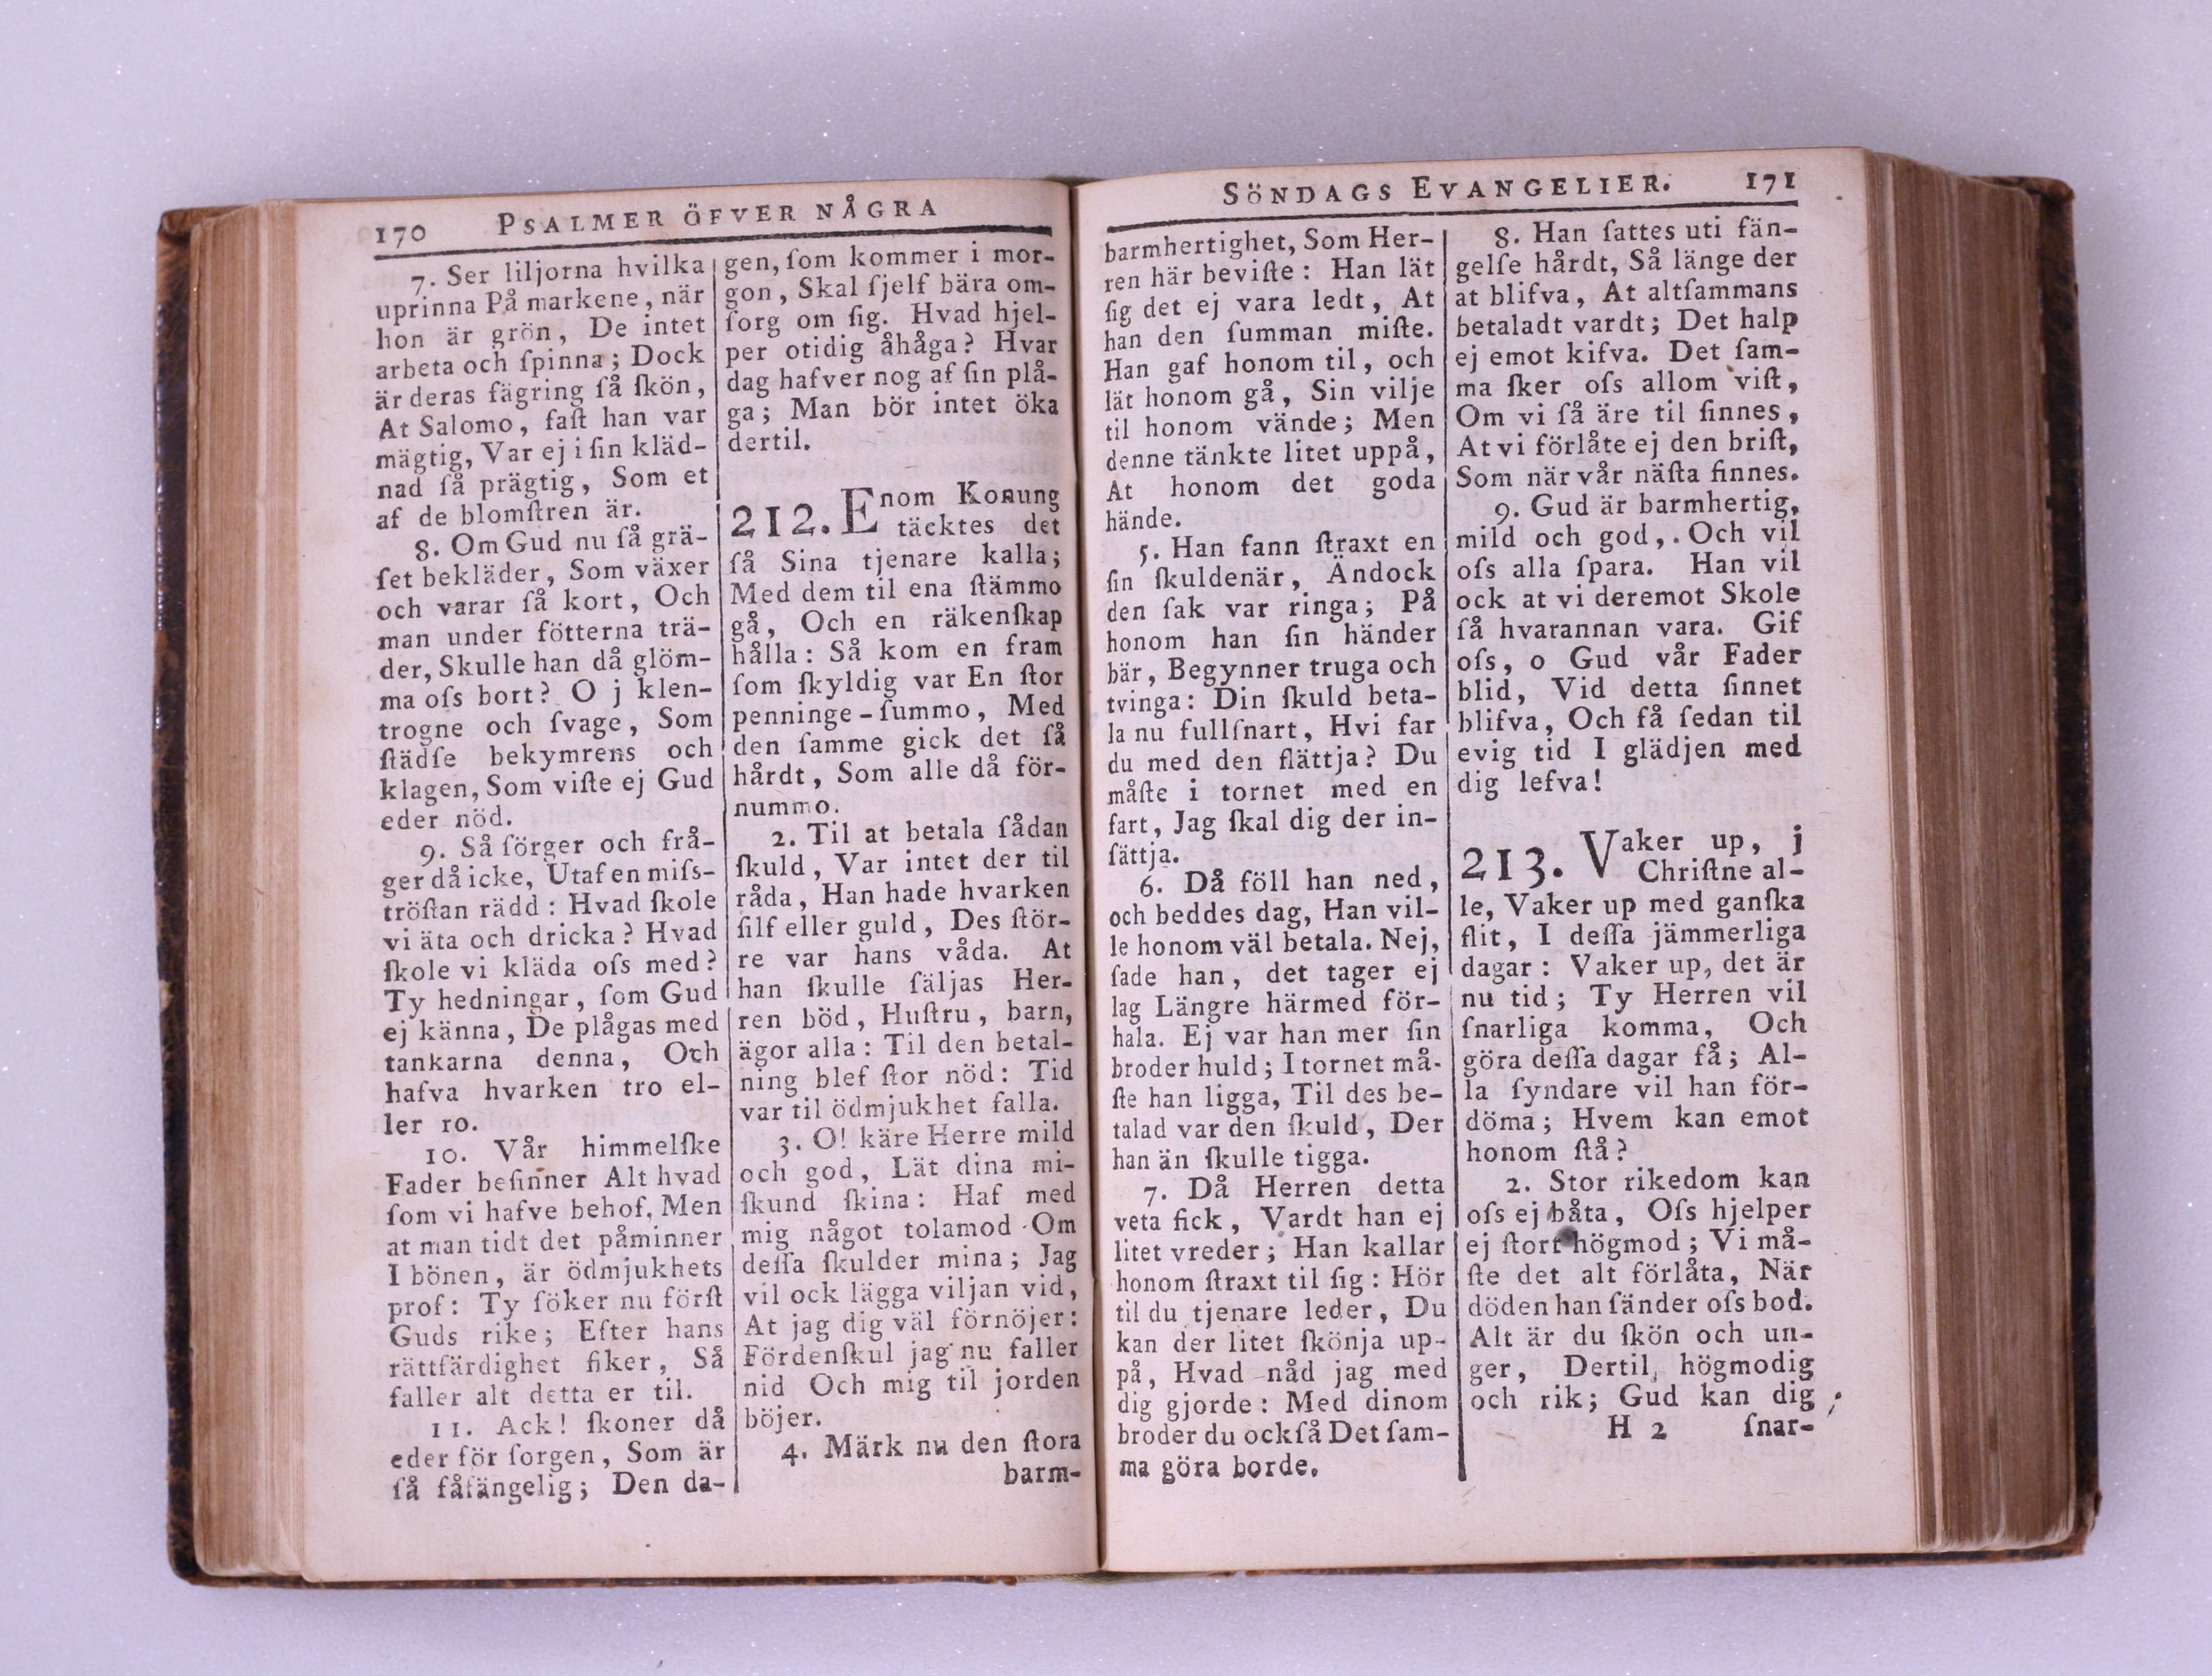 170 PSALMER ÖFVER NÅGRA
7. Ser liljorna hvilka
uprinna På markene, när
hon är grön, De intet
arbeta och ſpinna; Dock
är deras fägring ſå ſkön,
At Salomo, faſt han var
mägtig, Var ej i ſin kläd-
nad ſå prägtig, Som et
af de blomſtren är.
8. Om Gud nu ſå grä-
ſet bekläder, Som växer
och varar ſå kort, Och
man under fötterna trä-
der, Skulle han då glöm-
ma oſs bort? O j klen-
trogne och ſvage, Som
ſtädſe bekymrens och
klagen, Som viſte ej Gud
eder nöd.
9. Så ſörger och frå-
ger då icke, Utaf en miſs-
tröſtan rädd: Hvad ſkole
vi äta och dricka? Hvad
ſkole vi kläda oſs med?
Ty hedningar, ſom Gud
ej känna, De plågas med
tankarna denna, Och
hafva hvarken tro el-
ler ro.
10. Vår himmelſke
Fader beſinner Alt hvad
ſom vi hafve behof, Men
at man tidt det påminner
I bönen, är ödmjukhets
prof: Ty ſöker nu förſt
Guds rike; Efter hans
rättfärdighet fiker, Så
faller alt detta er til.
11. Ack! ſkoner då
eder för ſorgen, Som är
ſå fåfängelig; Den da-
gen, ſom kommer i mor-
gon, Skal ſjelf bära om-
ſorg om ſig. Hvad hjel-
per otidig åhåga? Hvar
dag hafver nog af ſin plå-
ga; Man bör intet öka
dertil.
212. Enom Konung
täcktes det
ſå Sina tjenare kalla;
Med dem til ena ſtämmo
gå, Och en räkenſkap
hålla: Så kom en fram
ſom ſkyldig var En ſtor
penninge-ſummo, Med
den ſamme gick det ſå
hårdt, Som alle då för-
nummo.
2. Til at betala ſådan
ſkuld, Var intet der til
råda, Han hade hvarken
ſilf eller guld, Des ſtör-
re var hans våda. At
han ſkulle ſäljas Her-
ren böd, Huſtru, barn,
ägor alla: Til den betal-
ning blef ſtor nöd: Tid
var til ödmjukhet falla.
3. O! käre Herre mild
och god, Lät dina mi-
ſkund ſkina: Haf med
mig något tolamod Om
deſſa ſkulder mina; Jag
vil ock lägga viljan vid,
At jag dig väl förnöjer:
Fördenſkul jag nu faller
nid Och mig til jorden
böjer.
4. Märk nu den ſtora
barm-
SÖNDAGS EVANGELIER. 171
barmhertighet, Som Her-
ren här beviſte: Han lät
ſig det ej vara ledt, At
han den ſumman miſte.
Han gaf honom til, och
lät honom gå, Sin vilje
til honom vände; Men
denne tänkte litet uppå,
At honom det goda
hände.
5. Han fann ſtraxt en
ſin ſkuldenär, Ändock
den ſak var ringa; På
honom han ſin händer
bär, Begynner truga och
tvinga: Din ſkuld beta-
la nu fullſnart, Hvi far
du med den flättja? Du
måſte i tornet med en
fart, Jag ſkal dig der in-
ſättja.
6. Då föll han ned,
och beddes dag, Han vil-
le honom väl betala. Nej,
ſade han, det tager ej
lag Längre härmed för-
hala. Ej var han mer ſin
broder huld; I tornet må-
ſte han ligga, Til des be-
talad var den ſkuld, Der
han än ſkulle tigga.
7. Då Herren detta
veta fick, Vardt han ej
litet vreder; Han kallar
honom ſtraxt til ſig: Hör
til du tjenare leder, Du
kan der litet ſkönja up-
på, Hvad nåd jag med
dig gjorde: Med dinom
broder du ockſå Det ſam-
ma göra borde.
8. Han ſattes uti fän-
gelſe hårdt, Så länge der
at blifva, At altſammans
betaladt vardt; Det halp
ej emot kifva. Det ſam-
ma ſker oſs allom viſt,
Om vi ſå äre til ſinnes,
At vi förlåte ej den briſt,
Som när vår näſta finnes.
9. Gud är barmhertig,
mild och god,. Och vil
oſs alla ſpara. Han vil
ock at vi deremot Skole
ſå hvarannan vara. Gif
oſs, o Gud vår Fader
blid, Vid detta ſinnet
blifva, Och få ſedan til
evig tid I glädjen med
dig lefva!
213. Vaker up, j
Chriſtne al-
le, Vaker up med ganſka
flit, I deſſa jämmerliga
dagar: Vaker up, det är
nu tid; Ty Herren vil
ſnarliga komma, Och
göra deſſa dagar få; Al-
la ſyndare vil han för-
döma; Hvem kan emot
honom ſtå?
2. Stor rikedom kan
oſs ej båta, Oſs hjelper
ej ſtort högmod; Vi må-
ſte det alt förlåta, När
döden han ſänder oſs bod.
Alt är du ſkön och un-
ger, Dertil, högmodig
och rik; Gud kan dig
H 2 ſnar-